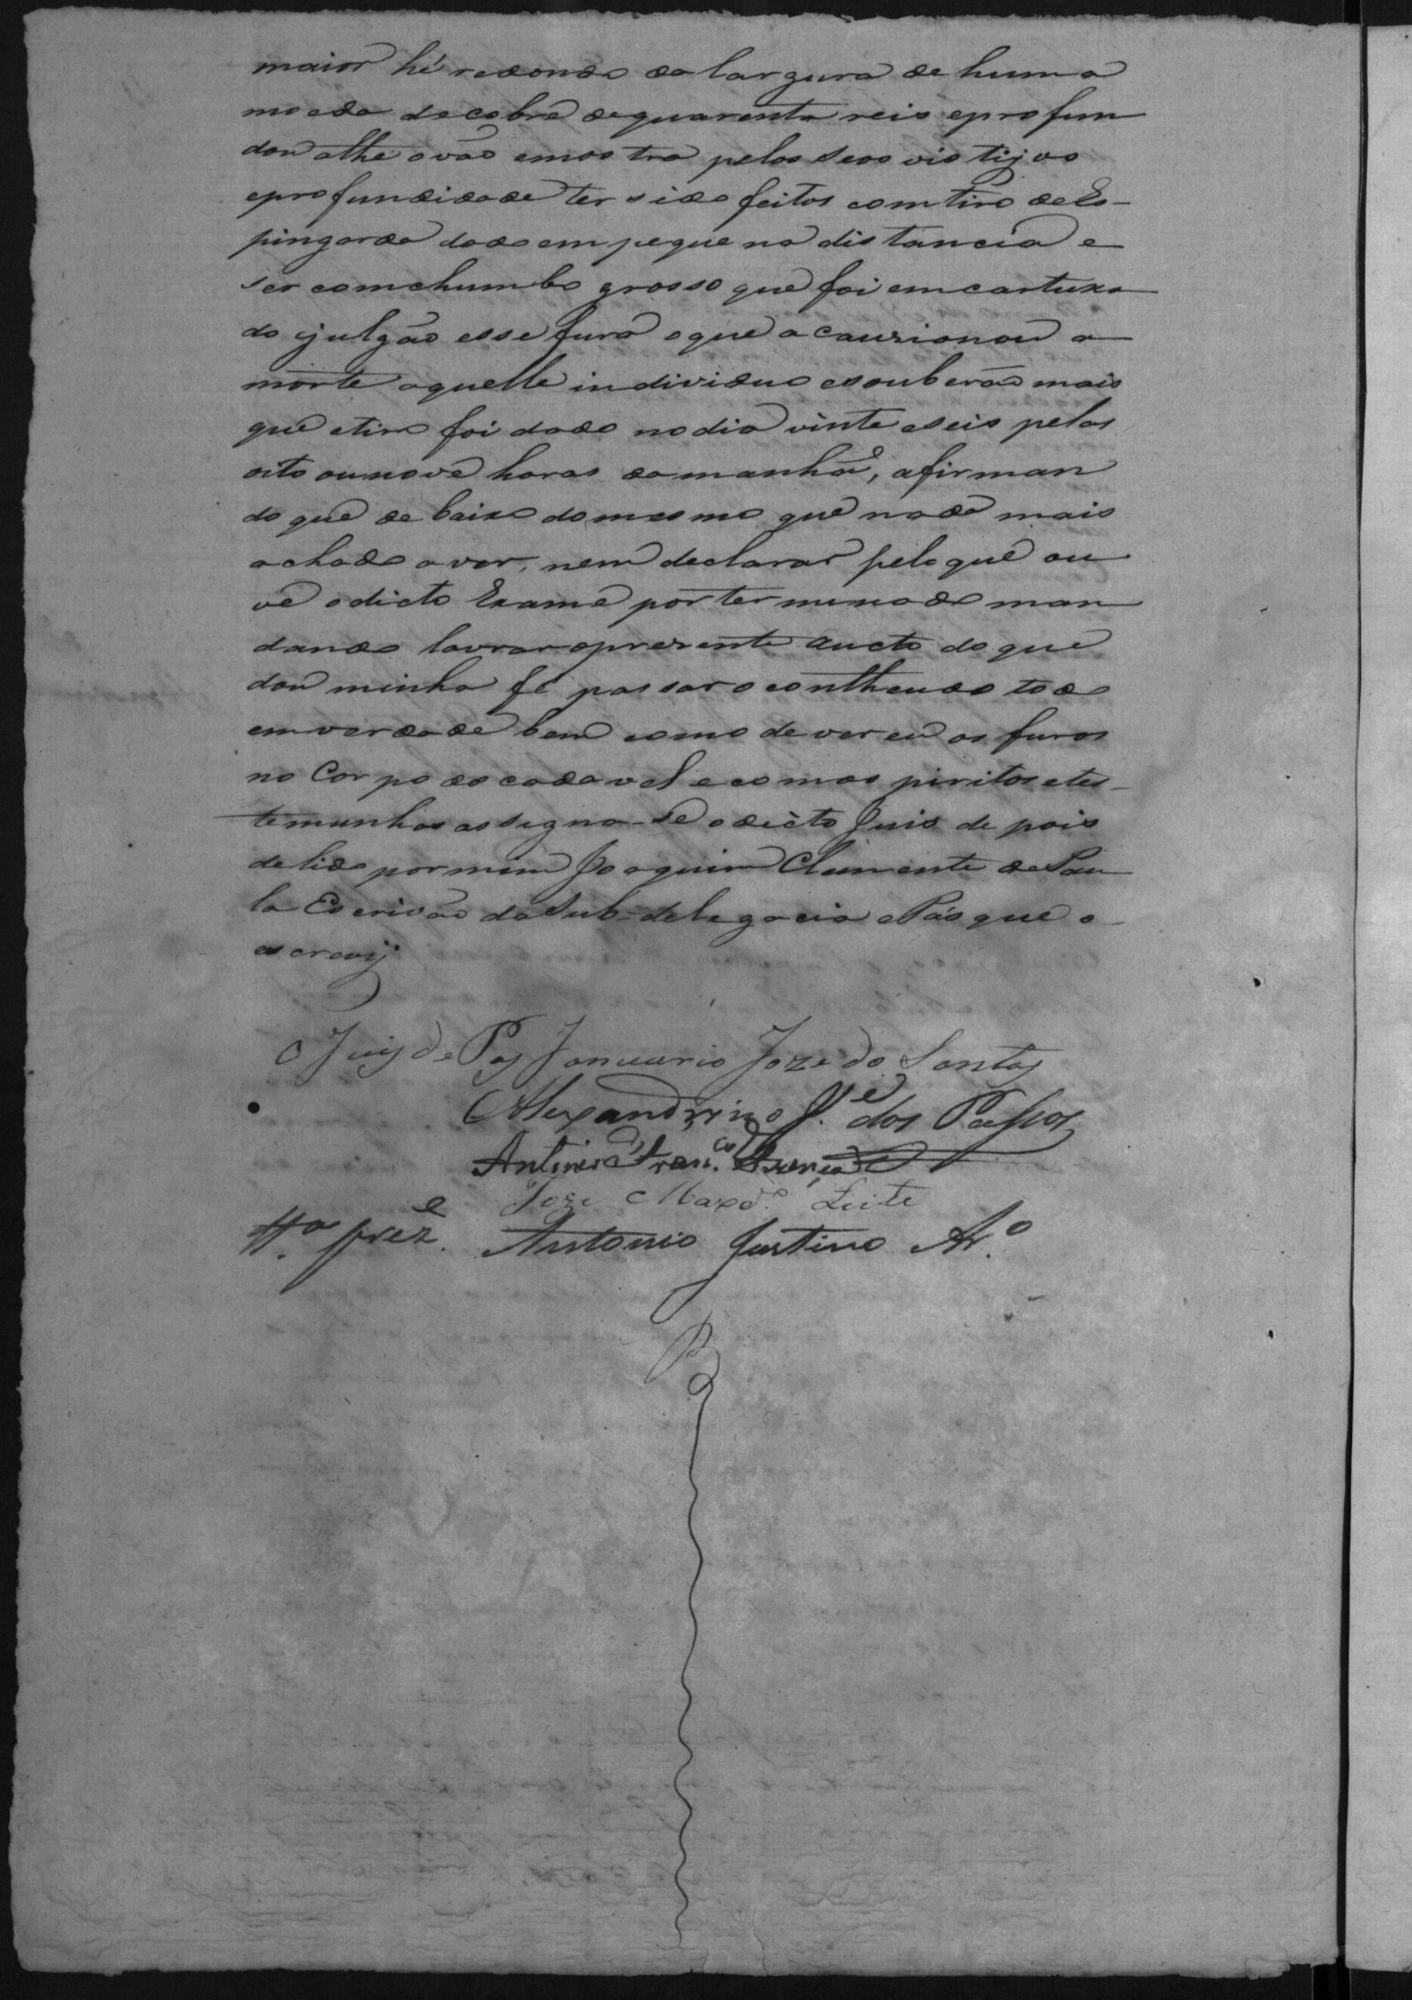 maior hé redondo da largura de huma
moeda de cobre de quarenta reis eprofun
dou athe o vão emostra pelos seos vistijos
eprofundidade ter sido feitos comtiro de Es-
pingarda dado em pequena distancia e
ser comchumbo grosso que foi emcartuxa
do ejulgão esse furo oque acauzionou a
morte aquelle individuo esouberão mais
que otiro foi dado nodia vinte eseis pelas
oito ounove horas damanhã, afirman
do que debaixo domesmo que nada mais
achado aver, nem declarar peloque ou
ve odicto Exame porterminado man
dando lavrar opresente aucto doque
dou minha fé passar oconthendo todo
emverdade bem como dever eu os furos
no Corpo docadavel ecomos piritos etes-
temunhas assigna-se odicto Juis depois
delido pormim Joaquim Clemente dePau
la Escrivão daSub-delegacia ePás que o
escrevij
O Juis de Pas Januario Joze do Santos
Alexandrino J.e dos Passos
Antonio Fran.co
Joze Maxd.o Leite
tt.a prez.e Antonio Justino Ar.o